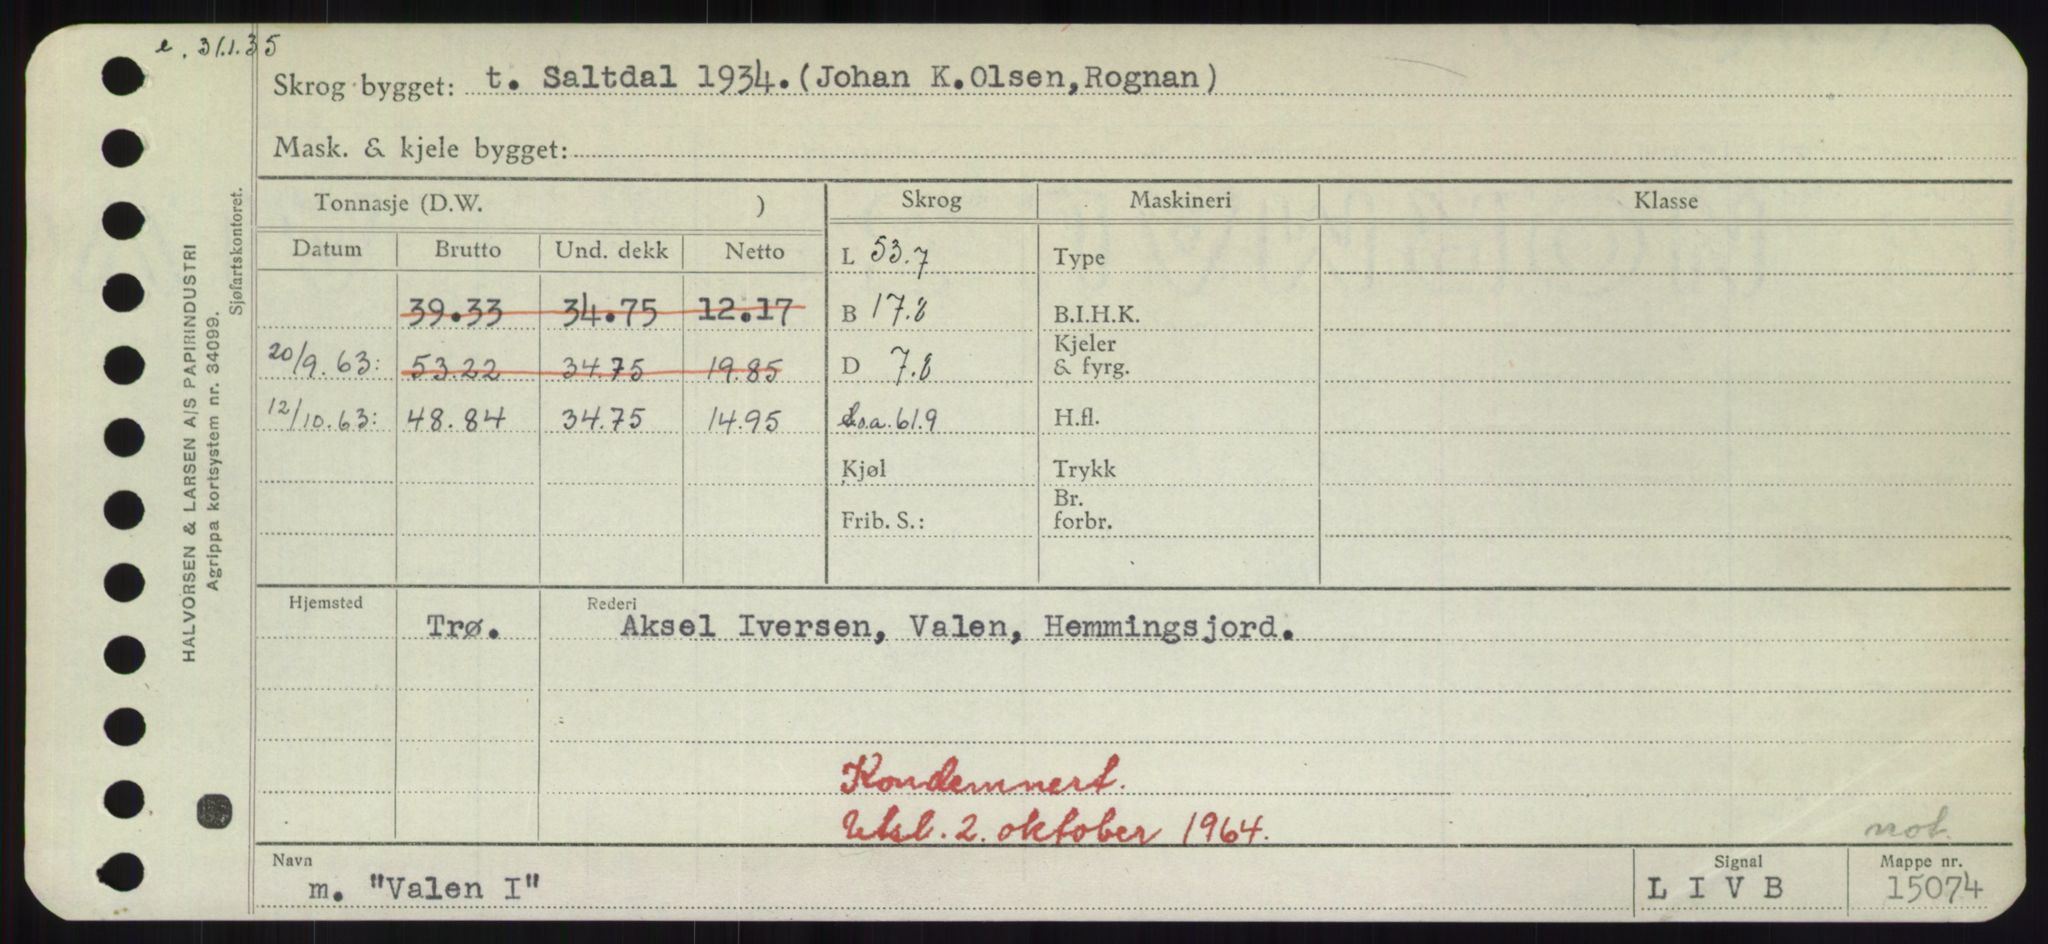 e. 31.1.35
Skrog bygget: t. Saltdal 1934. (Johan K.Olsen,Rognan)
Mask. & kjele bygget:
Tonnasje (D.W. ) Skrog Maskineri Klasse
Datum Brutto Und. dekk Netto L 53.7 Type
39.33 34.75 12.17 B 17.8 B.I.H.K.
20/9.63: 53.22 34.75 19.85 D 7.8 Kjeler & fyrg.
12/10.63: 48.84 34.75 14.95 L.o.a. 61.9 H.fl.
Kjøl Trykk
Frib. S.: Br. forbr.
Hjemsted Rederi
Trø. Aksel Iversen, Valen, Hemmingsjord.
Kondemnert.
Utsl. 2. oktober 1964.
not.
Navn Signal Mappe nr.
m. "Valen I" L I V B 15074
HALVORSEN & LARSEN A/S PAPIRINDUSTRI
Agrippa kortsystem nr. 34099.
Sjøfartskontoret.